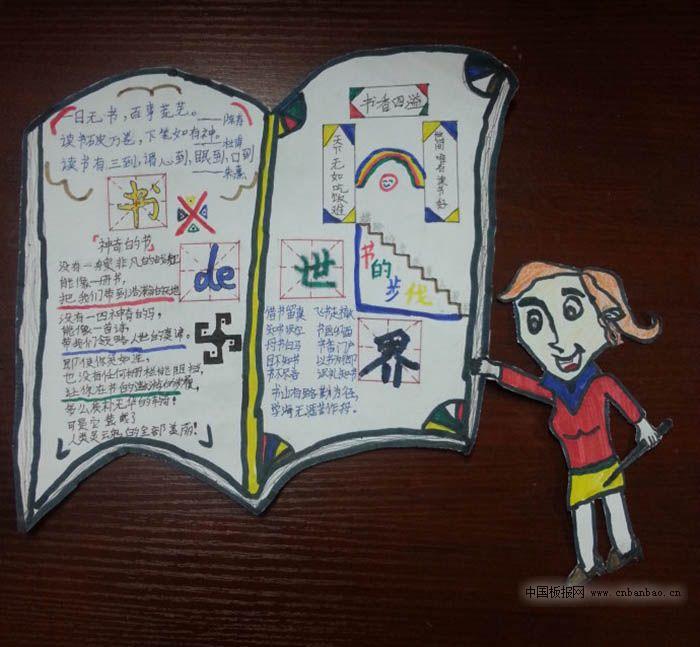 一日无书，百事荒芜。——陈寿
读书破万卷，下笔如有神。——杜甫
读书有三到，谓心到，眼到，口到
——朱熹
书
「神奇的书」
没有一艘非凡的战舰
能像一册书，
把我们带到浩瀚的天地
de
没有一匹神奇的马，
能像一首诗，
带我们领略人世的真谛。
即使你贫如洗，
也没有任何栅栏能阻挡，
让你在书的遨游的
多么质朴无华的车骑！
可是它装载了
人类灵云的全部美丽！
书香四溢
天下无如吃饭难
世间唯有读书好
书的步伐
世
界
借书留真
知书识位
目不知书
书香门户
书山有路勤为径，
学海无涯苦作舟。
中国板报网 www.cnbanbao.cn